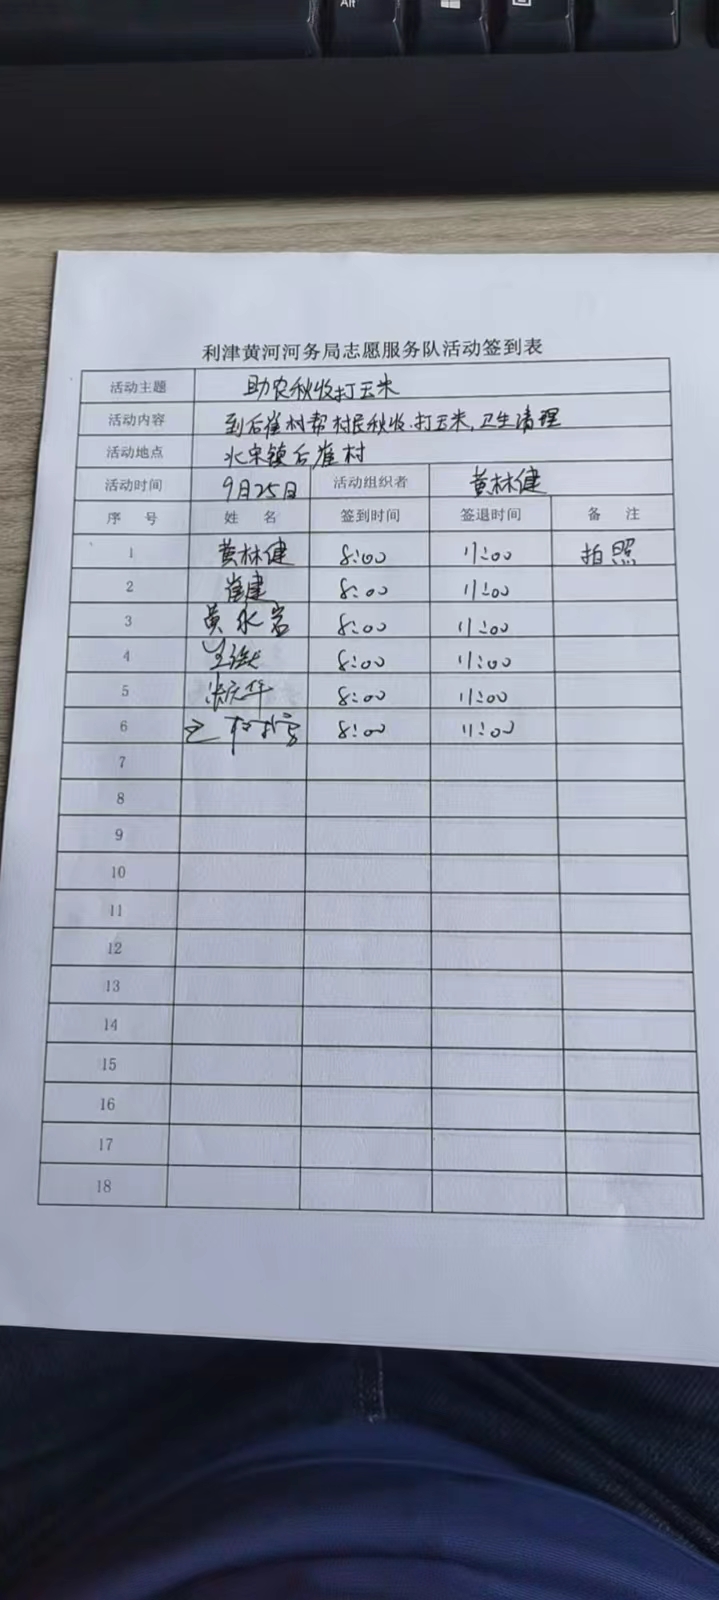 Alt
利津黄河河务局志愿服务队活动签到表
活动主题 助农秋收打玉米
活动内容 到后崔村帮村民秋收.打玉米,卫生清理
活动地点 北宋镇后崔村
活动时间 9月25日 活动组织者 黄林健
序 号 姓 名 签到时间 签退时间 备 注
1 黄林健 8:00 11:00 拍照
2 崔建 8:00 11:00
3 黄水岩 8:00 11:00
4 8:00 11:00
5 8:00 11:00
6 8:00 11:00
7
8
9
10
11
12
13
14
15
16
17
18